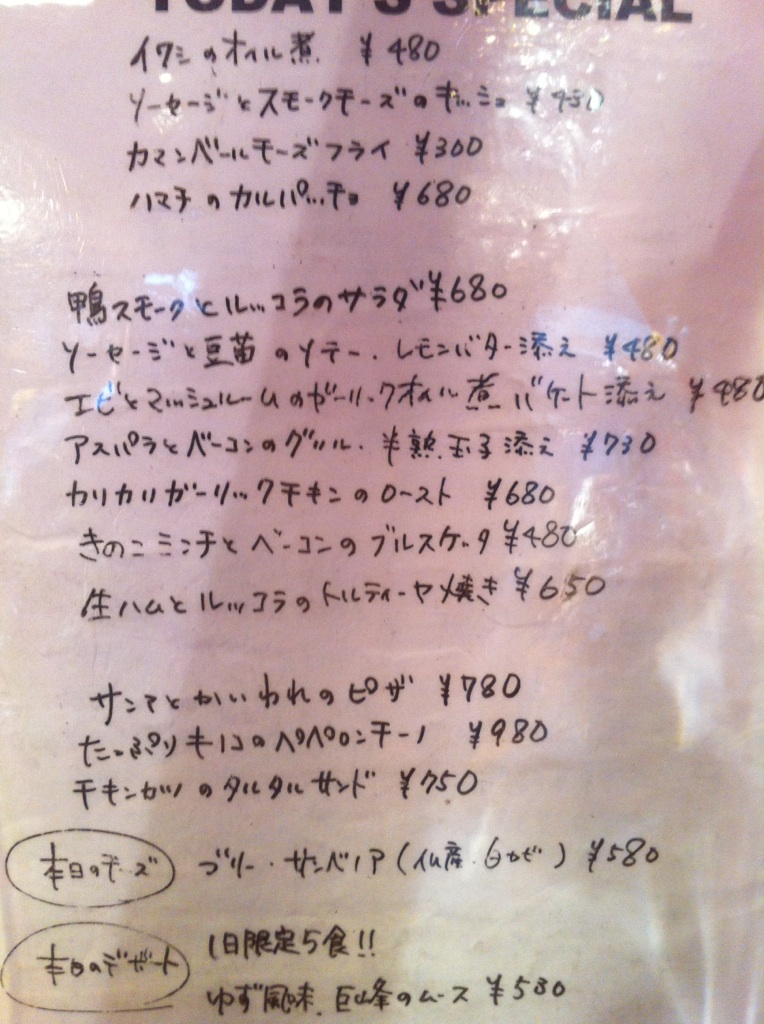 TODAY'S SPECIAL
イワシのオイル煮 ¥480
ソーセージとスモークチーズのキッシュ
カマンベールチーズフライ ¥300
ハマチのカルパッチョ ¥680
鴨スモークとルッコラのサラダ ¥680
ソーセージと豆苗のソテー・レモンバター添え ¥480
エビとマッシュルームのガーリックオイル煮 バゲット添え ¥480
アスパラとベーコンのグリル・半熟玉子添え ¥730
カリカリガーリックチキンのロースト ¥680
きのこミンチとベーコンのブルスケッタ ¥480
生ハムとルッコラのトルティーヤ焼き ¥650
サンマとかいわれのピザ ¥780
たっぷりキノコのペペロンチーノ ¥980
チキンカツのタルタルサンド ¥750
本日のチーズ ブリー・サンベノア(仏産・白カビ) ¥580
本日のデザート 1日限定5食!!
ゆず風味、巨峰のムース ¥530